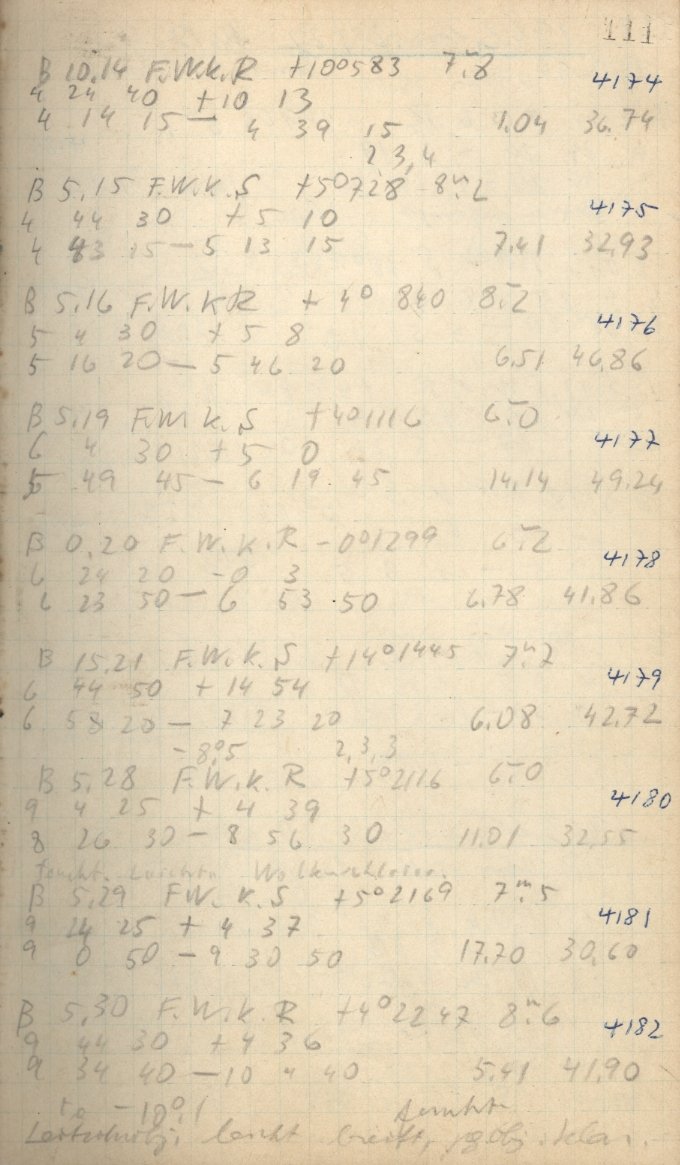 111
B 10,14 F.W.K.R +10°583 7ᵐ,8
4174
4 24 40 +10 13
4 14 15 — 4 39 15 1.04 36.74
2 3,4
B 5,15 F.W.K.S +5°728 8ᵐ,2
4175
4 44 30 +5 10
4 43 15 — 5 13 15 7.41 32.93
B 5,16 F.W.K.R +4° 840 8ᵐ,2
4176
5 4 30 +5 8
5 16 20 — 5 46 20 6.51 46.86
B 5,19 F.W.K.S +4°1116 6ᵐ,0
4177
6 4 30 +5 0
5 49 45 — 6 19 45 14.14 49.24
B 0,20 F.W.K.R -0°1299 6ᵐ,2
4178
6 24 20 -0 3
6 23 50 — 6 53 50 6.78 41.86
B 15,21 F.W.K.S +14°1445 7ᵐ,7
4179
6 44 50 +14 54
6 58 20 — 7 23 20 6.08 42.72
-8°,5 2,3,3
B 5,28 F.W.K.R +5°2116 6ᵐ,0
4180
9 4 25 +4 39
8 26 30 — 8 56 30 11.01 32.55
B 5,29 F.W.K.S +5°2169 7ᵐ,5
4181
9 24 25 +4 37
9 0 50 — 9 30 50 17.70 30.60
B 5,30 F.W.K.R +4°2247 8ᵐ,6
4182
9 44 30 +4 36
9 34 40 — 10 4 40 5.41 41.90
-10°,1
leicht